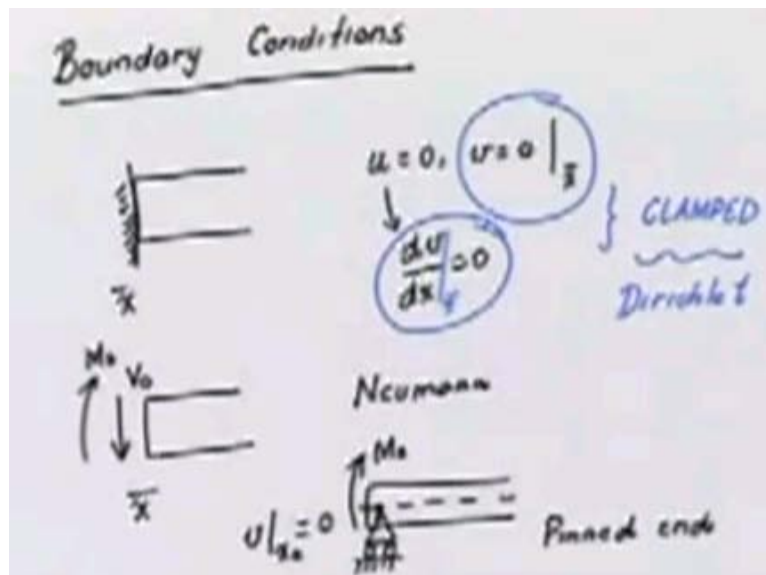 Boundary Conditions
u = 0, v = 0 |x̄
dv/dx | = 0
} CLAMPED
Dirichlet
x̄
M₀ V₀
x̄
Neumann
M₀
v|x₀ = 0
Pinned end